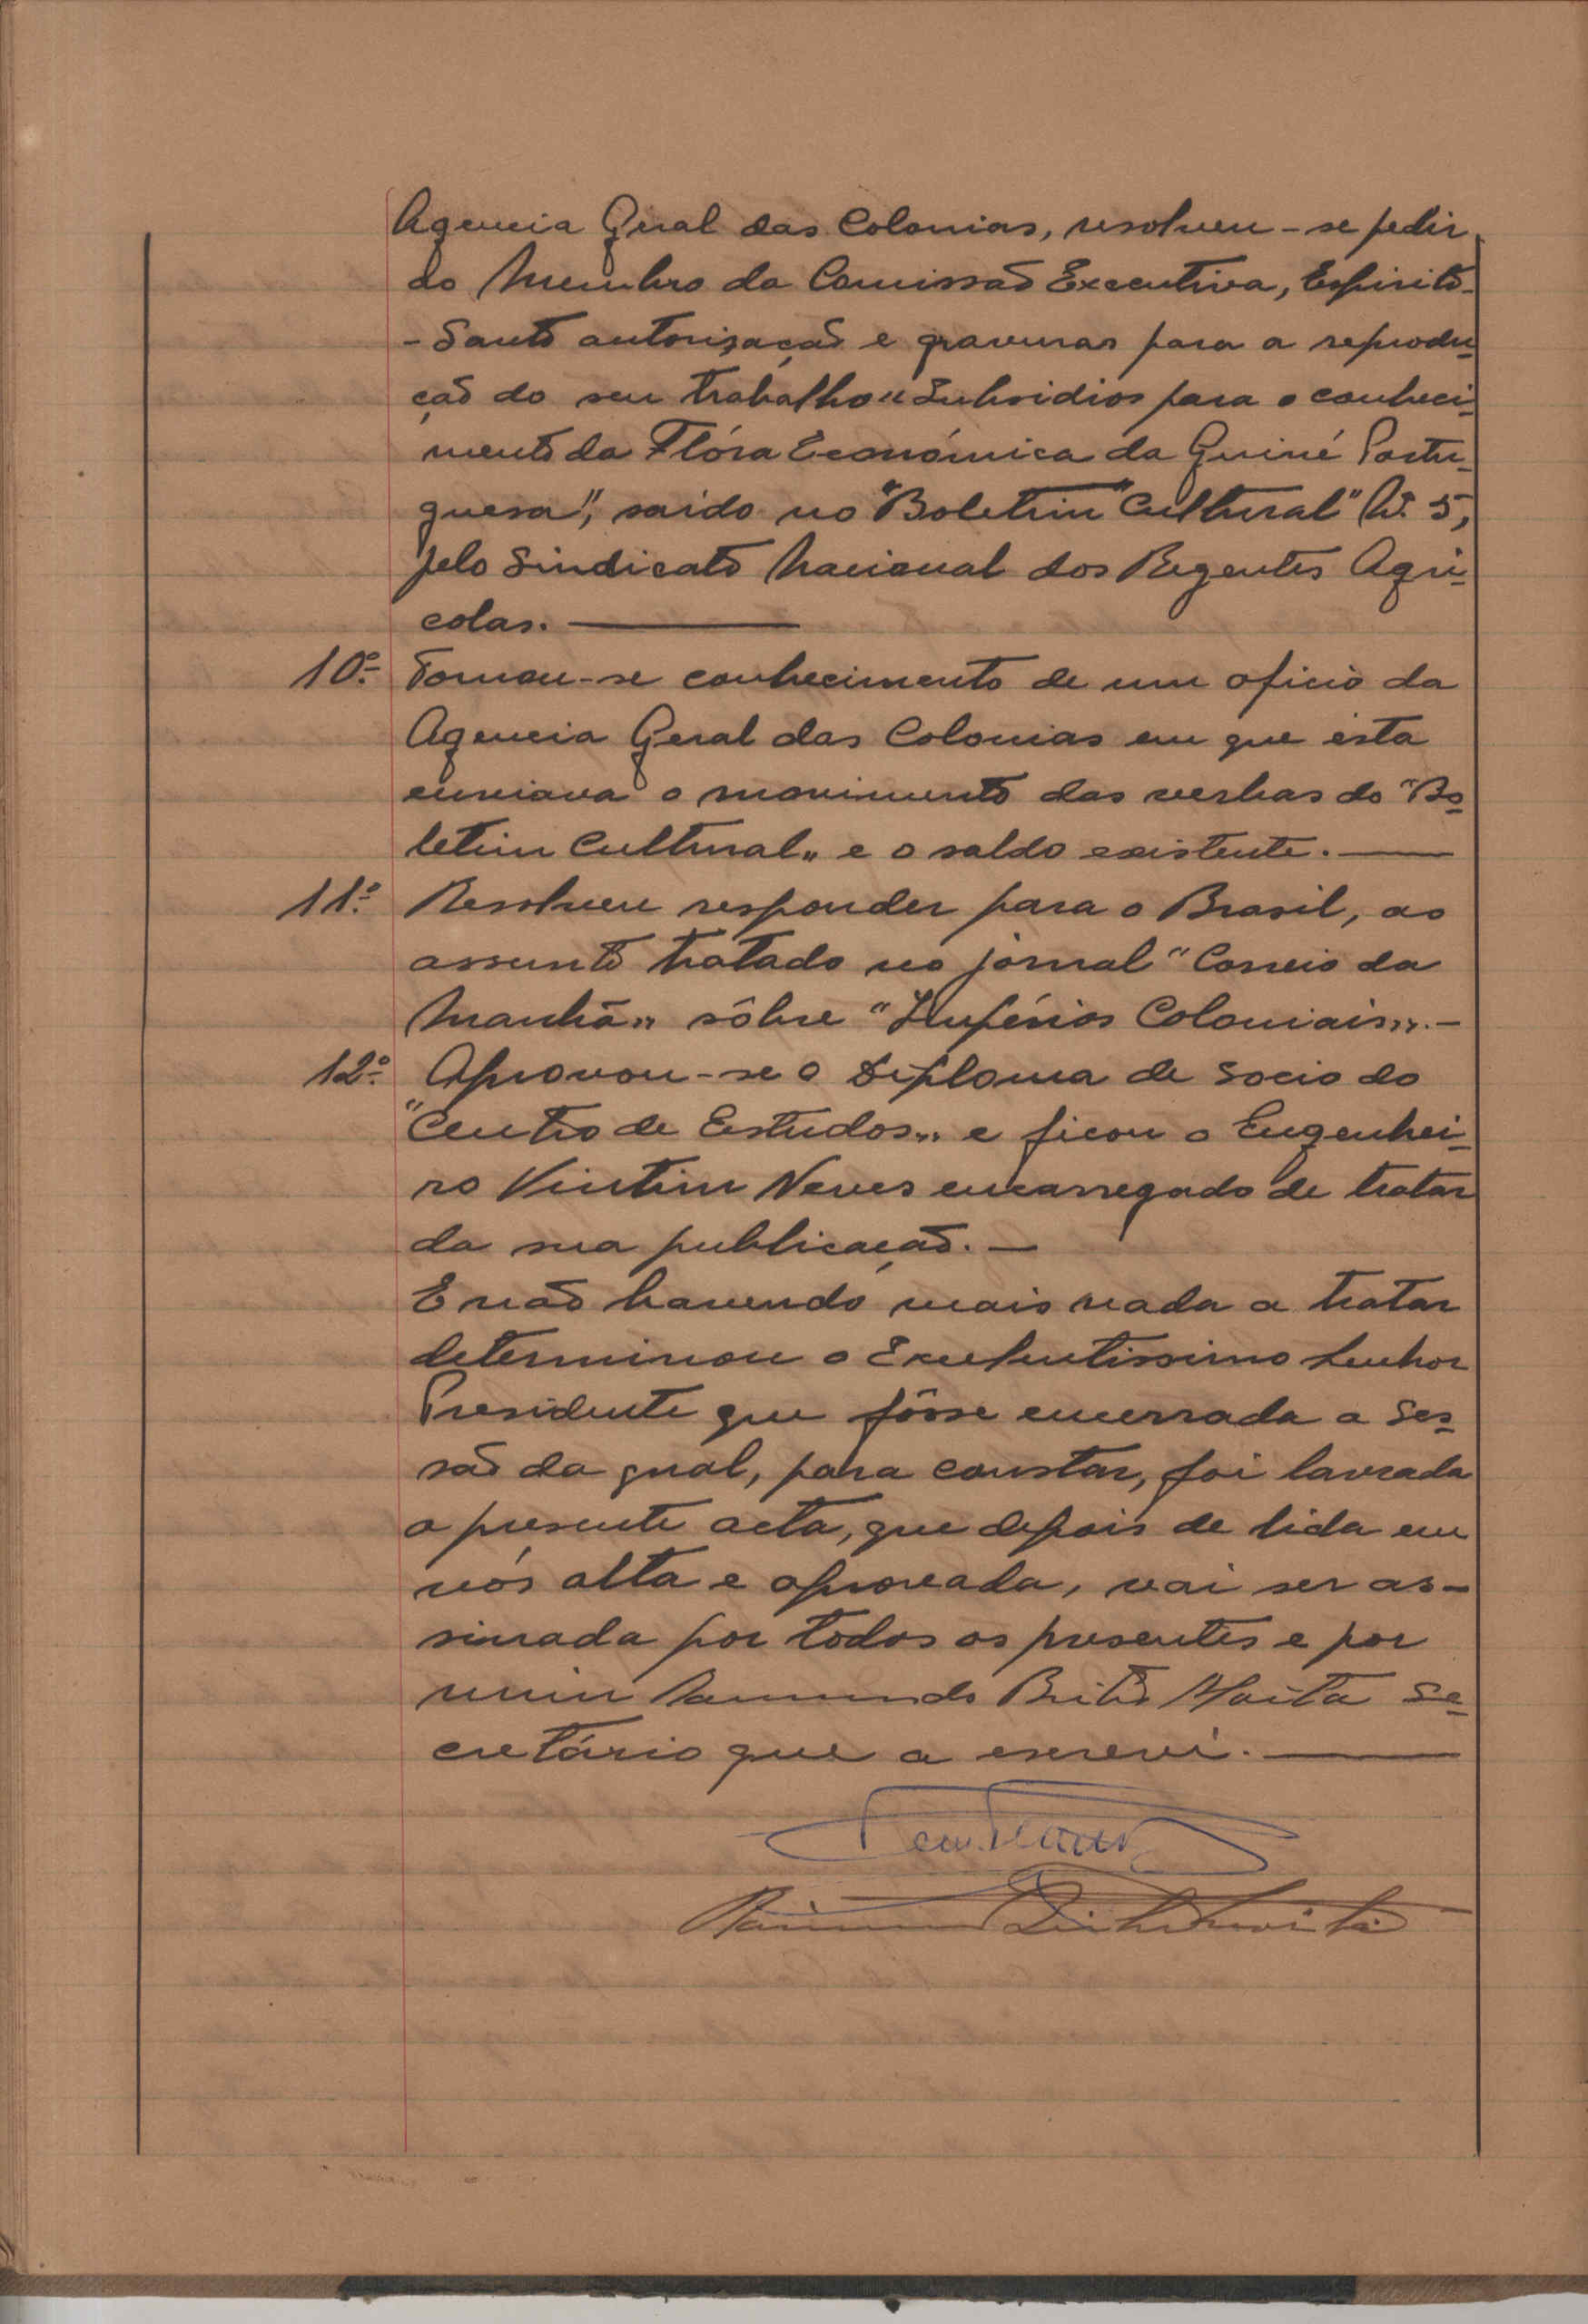 Agencia Geral das Colonias, resolveu-se pedir
do Membro da Comissão Executiva, Espirito-
-Santo autorização e gravuras para a reprodu-
ção do seu trabalho "Subsidios para o conheci-
mento da Flóra Económica da Guiné Portu-
guesa", saido no "Boletim Cultural" Nº 5,
pelo Sindicato Nacional dos Regentes Agri-
colas.
10º- Tomou-se conhecimento de um oficio da
Agencia Geral das Colonias em que esta
enviava o movimento das verbas do "Bo-
letim Cultural" e o saldo existente.
11º- Resolveu responder para o Brasil, ao
assunto tratado no jornal "Correio da
Manhã" sôbre "Impérios Coloniais". -
12º- Aprovou-se o Diploma de socio do
"Centro de Estudos" e ficou o Engenhei-
ro Vintim Neves encarregado de tratar
da sua publicação. -
E não havendo mais nada a tratar
determinou o Excelentissimo Senhor
Presidente que fôsse encerrada a ses-
são da qual, para constar, foi lavrada
a presente acta, que depois de lida em
vós alta e aprovada, vai ser as-
sinada por todos os presentes e por
mim Brito Moita Se-
cretário que a escrevi.